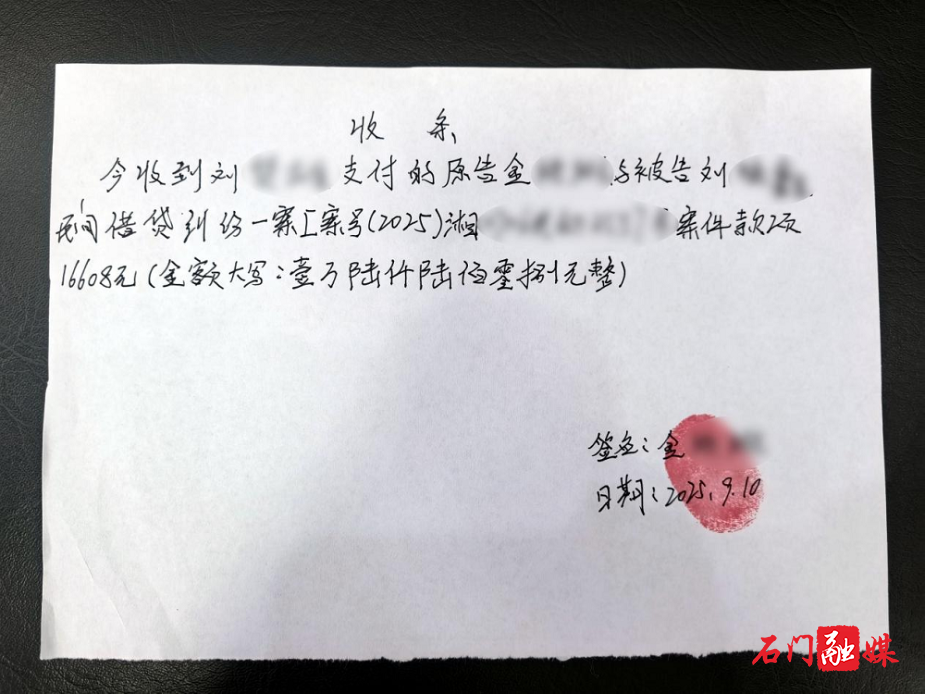 收条
今收到刘 支付的原告金 与被告刘
民间借贷纠纷一案[案号(2025)湘 案件款项
16608元(金额大写:壹万陆仟陆佰零捌元整)
签名:金
日期:2025.9.10
石门融媒